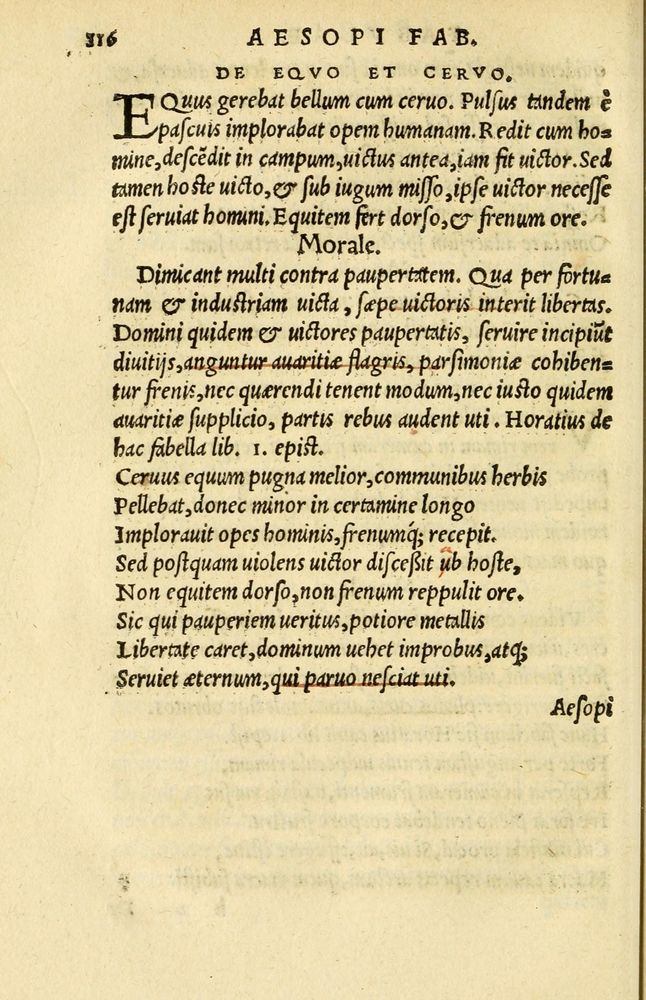 316 AESOPI FAB.
DE EQVO ET CERVO.
EQuus gerebat bellum cum ceruo. Pulſus tandem è
paſcuis implorabat opem humanam. Redit cum ho=
mine, deſcēdit in campum, uictus antea, iam fit uictor. Sed
tamen hoſte uicto, & ſub iugum miſſo, ipſe uictor neceſſe
eſt ſeruiat homini. Equitem fert dorſo, & frenum ore.
Morale.
Dimicant multi contra paupertatem. Qua per fortu=
nam & induſtriam uicta, ſæpe uictoris interit libertas.
Domini quidem & uictores paupertatis, ſeruire incipiūt
diuitijs, anguntur auaritiæ flagris, parſimoniæ cohiben=
tur frenis, nec quærendi tenent modum, nec iuſto quidem
auaritiæ ſupplicio, partis rebus audent uti. Horatius de
hac fabella lib. 1. epiſt.
Ceruus equum pugna melior, communibus herbis
Pellebat, donec minor in certamine longo
Implorauit opes hominis, frenumq́; recepit.
Sed poſtquam uiolens uictor diſceßit ub hoſte,
Non equitem dorſo, non frenum reppulit ore.
Sic qui pauperiem ueritus, potiore metallis
Libertate caret, dominum uehet improbus, atq;
Seruiet æternum, qui paruo neſciat uti.
Aeſopi